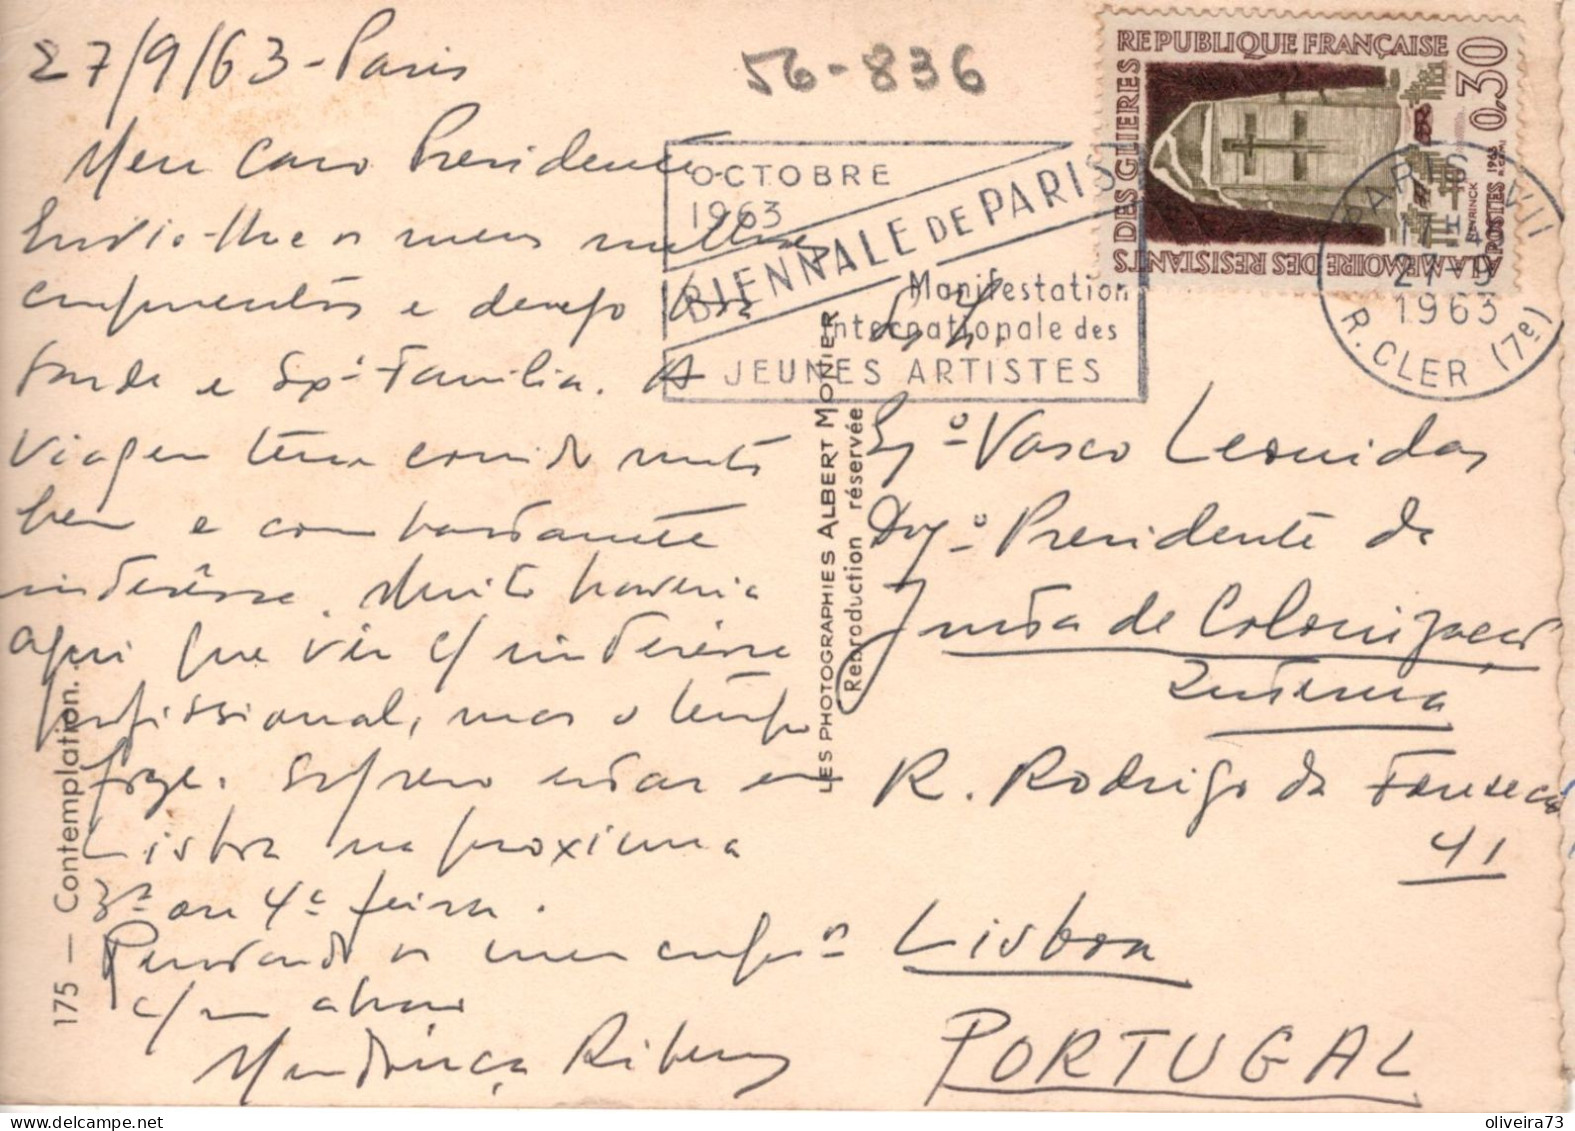 27/9/63 - Paris
56-836
Meu Caro Presidente
Envio-lhe os meus melhores
cumprimentos e desejo boa
saúde e Exª Família. A
viagem tem corrido muito
bem e com bastante
interêsse. Muito haveria
aqui que ver c/ interêsse
profissional, mas o tempo
foge. Espero estar em
Lisboa na próxima
3ª ou 4ª feira.
os meus cumpºs
c/ um abraço
Mendonça
REPUBLIQUE FRANÇAISE
0,30
A LA MEMOIRE DES RESISTANTS DES GLIERES
POSTES 1963
OCTOBRE
1963
BIENNALE DE PARIS
Manifestation
Internationale des
JEUNES ARTISTES
PARIS VII
27-9
1963
R. CLER (7e)
Exº Vasco Leonidas
Digº Presidente da
Junta de Colonização
Interna
R. Rodrigo da Fonseca
41
Lisboa
PORTUGAL
LES PHOTOGRAPHIES ALBERT MONIER
Reproduction réservée
175 — Contemplation.
oliveira73